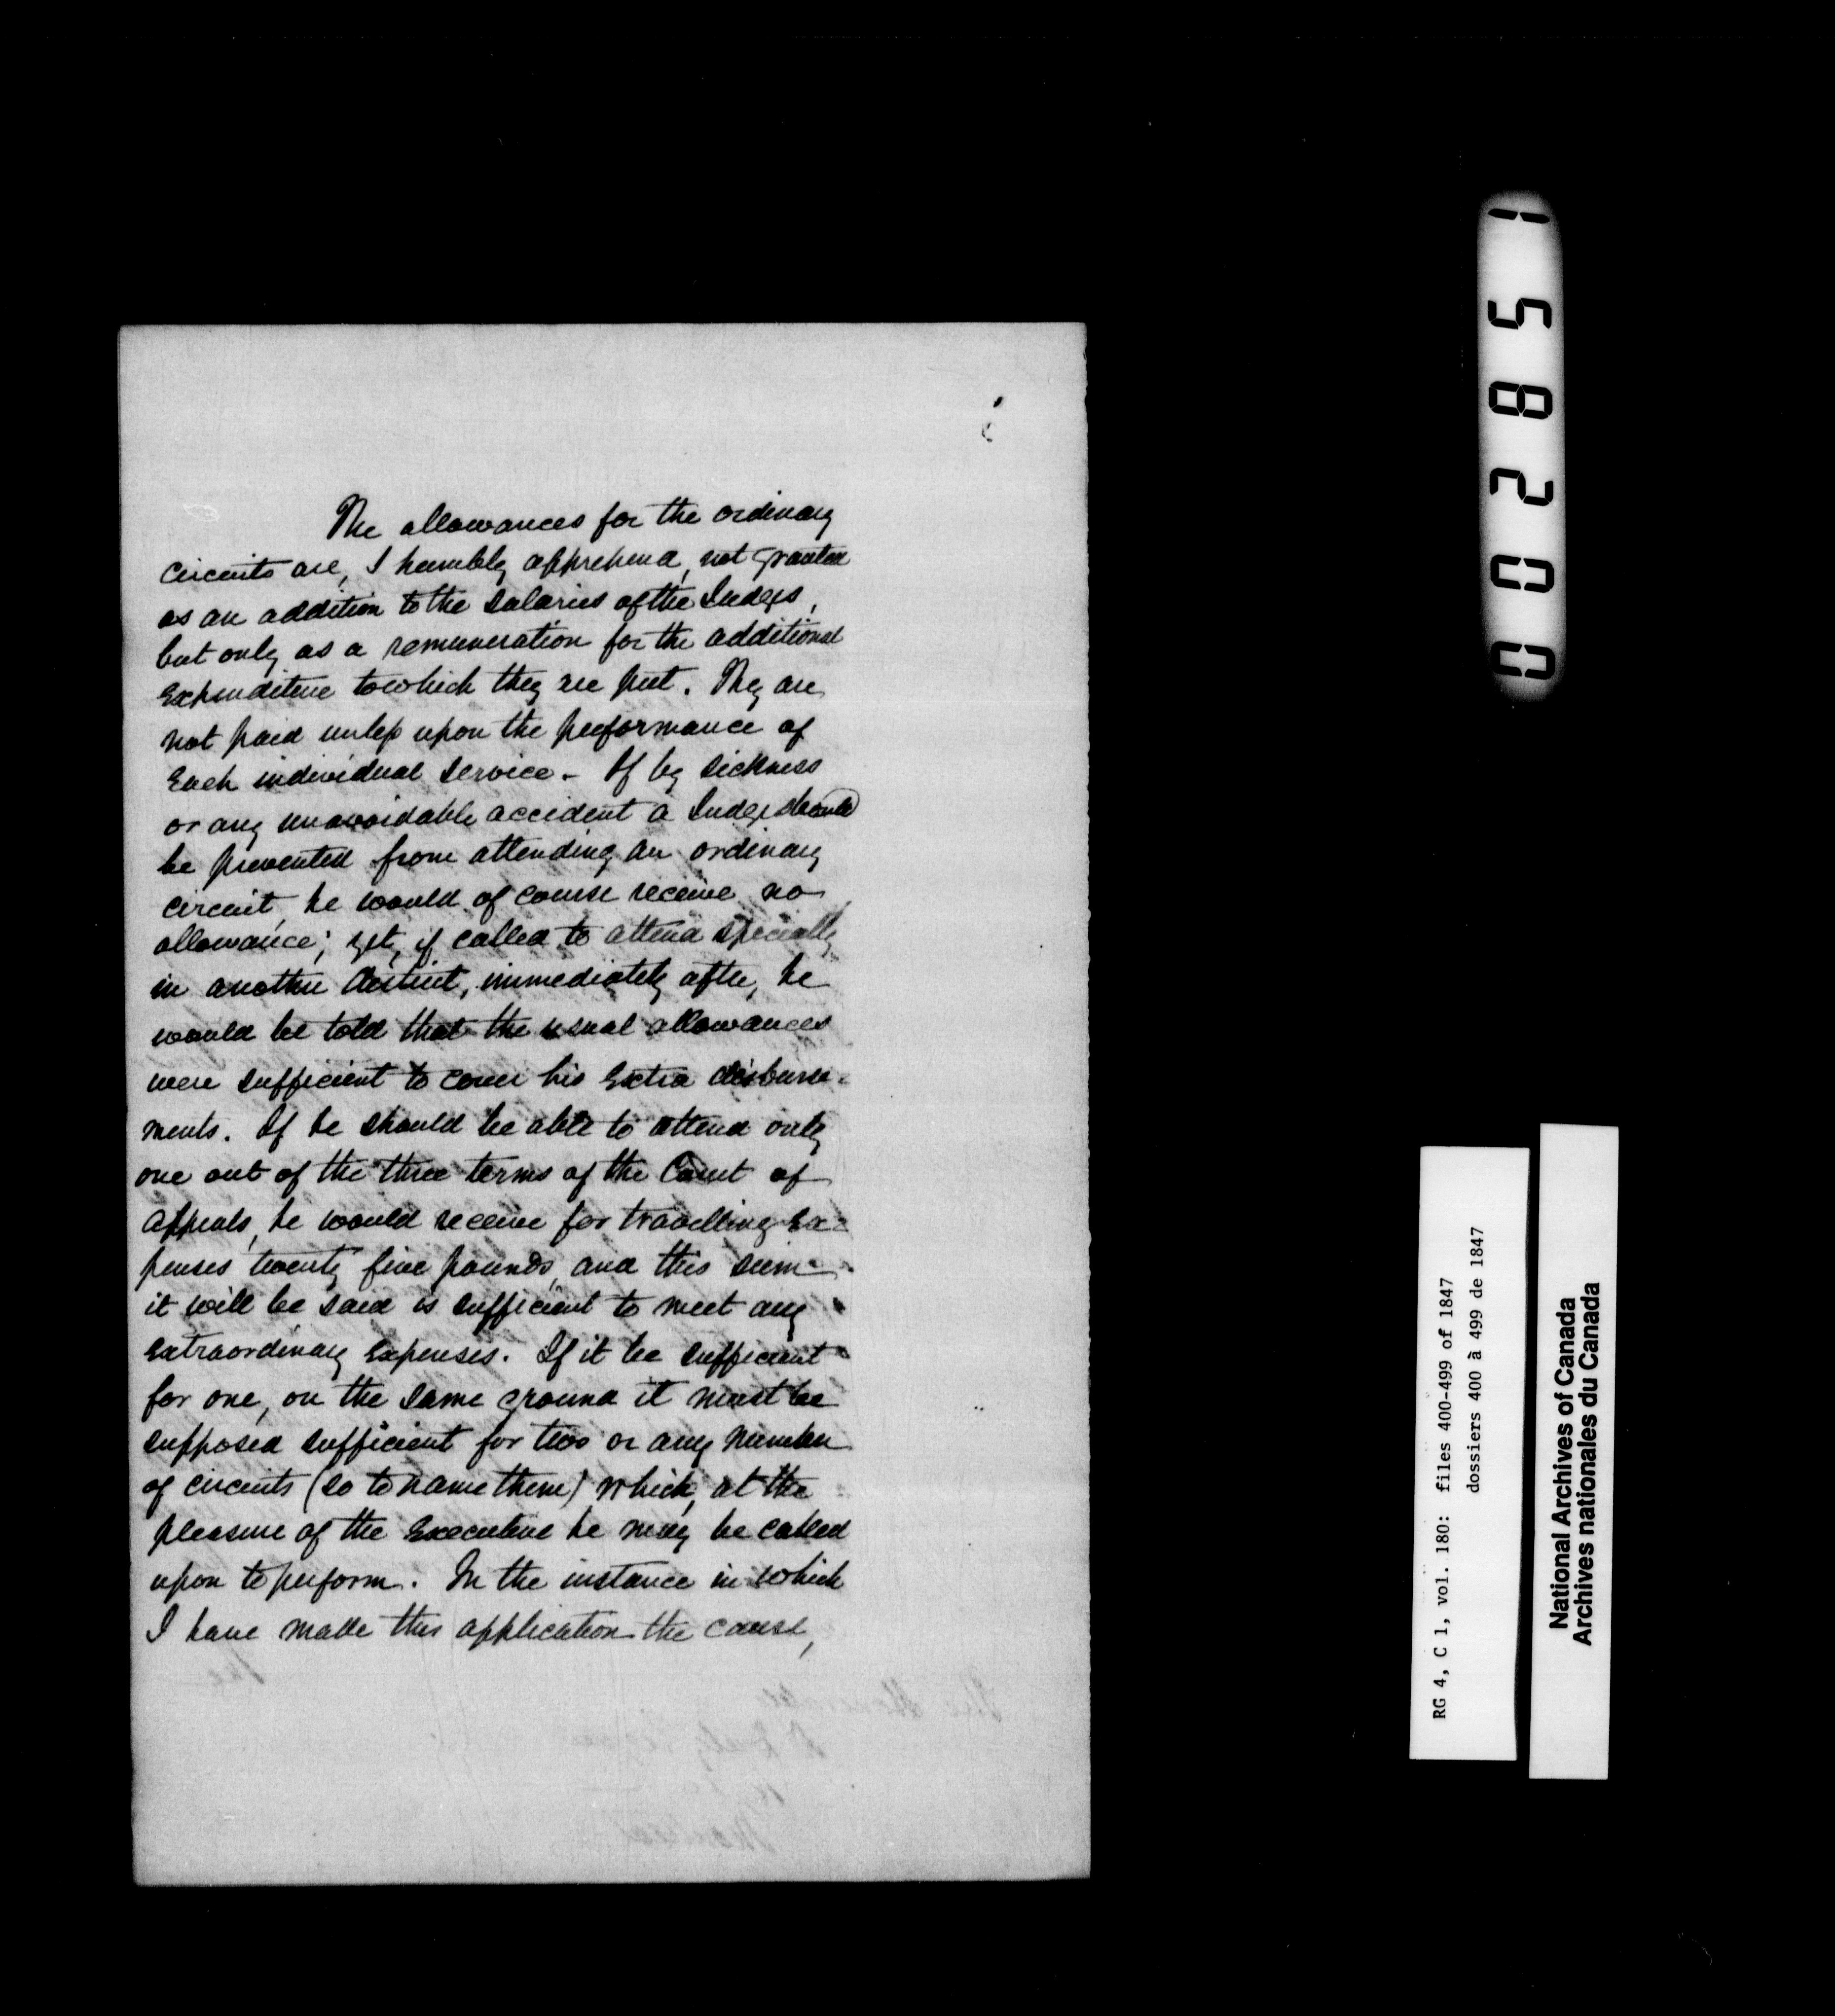 The allowances for the ordinary
circuits are, I humbly apprehend, not granted
as an addition to the salaries of the Judges,
but only as a remuneration for the additional
Expenditure to which they are put. They are
not paid unless upon the performance of
Each individual service - If by sickness
or any unavoidable accident a Judge should
be prevented from attending an ordinary
circuit, he would of course receive no
allowance; yet, if called to attend specially
in another district, immediately after, he
would be told that the usual allowances
were sufficient to cover his Extra disburse-
ments. If he should be able to attend only
one out of the three terms of the Court of
Appeals, he would receive for travelling Ex-
penses twenty five pounds, and this sum
it will be said is sufficient to meet any
Extraordinary Expenses. If it be sufficient
for one, on the same ground it must be
supposed sufficient for two or any number
of circuits (so to name them) which, at the
pleasure of the Executive he may be called
upon to perform. In the instance in which
I have made this application the cause,
002851
RG 4, C 1, vol. 180: files 400-499 of 1847
dossiers 400 à 499 de 1847
National Archives of Canada
Archives nationales du Canada